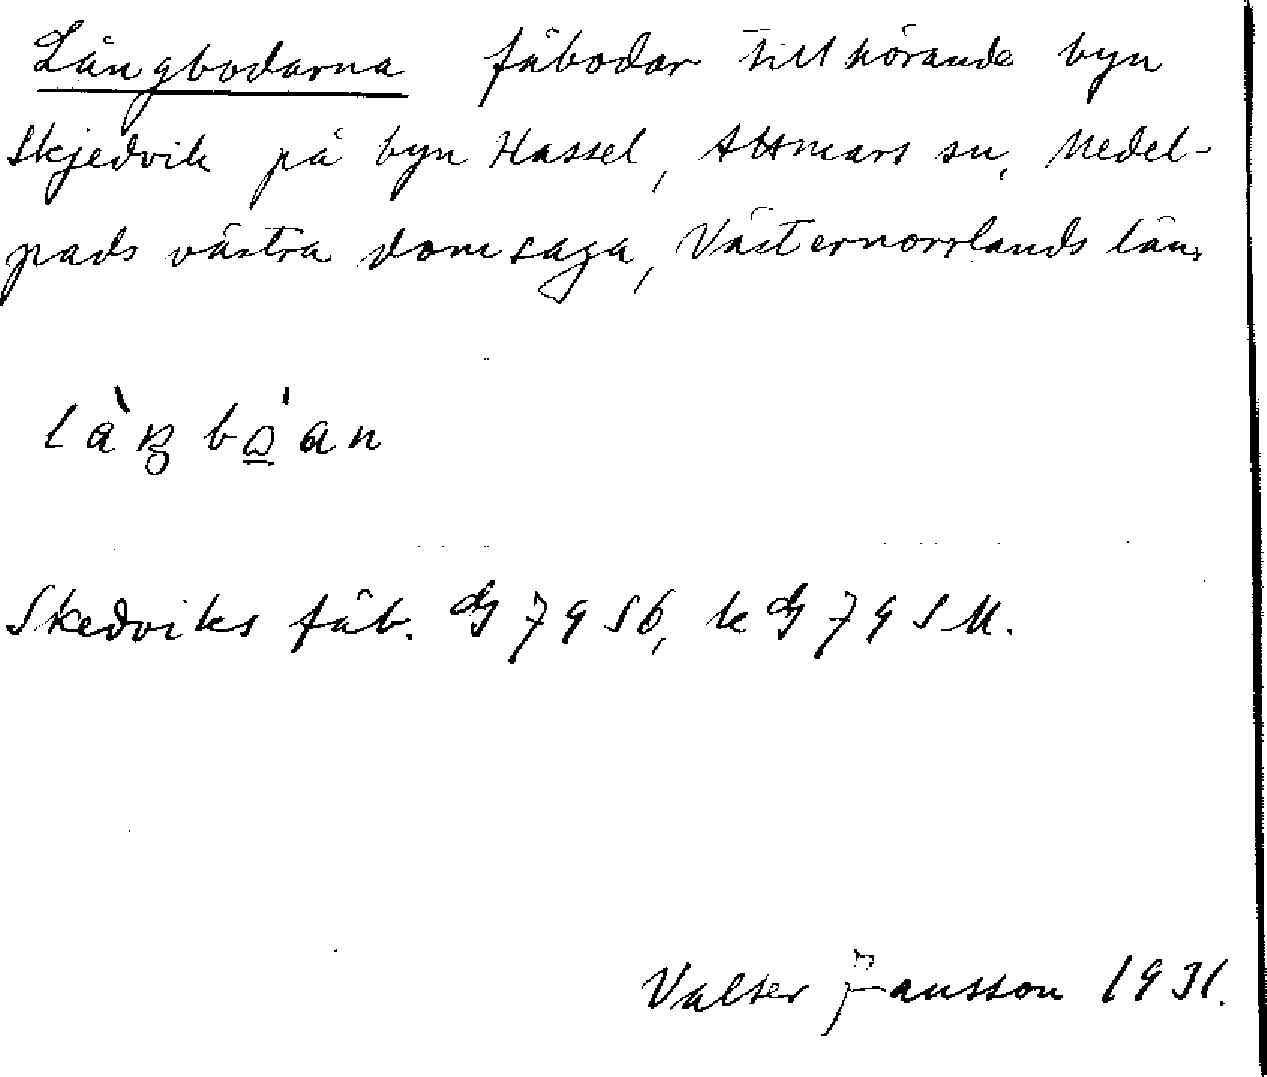 Långbodarna fäbodar tillhörande byn
Skjedvik på byn Hassel, Attmars sn, Medel-
pads västra domsaga, Västernorrlands län.
Skedviks fäb. G 79 Sb, k G 79 S M.
Valter Jansson 1931.